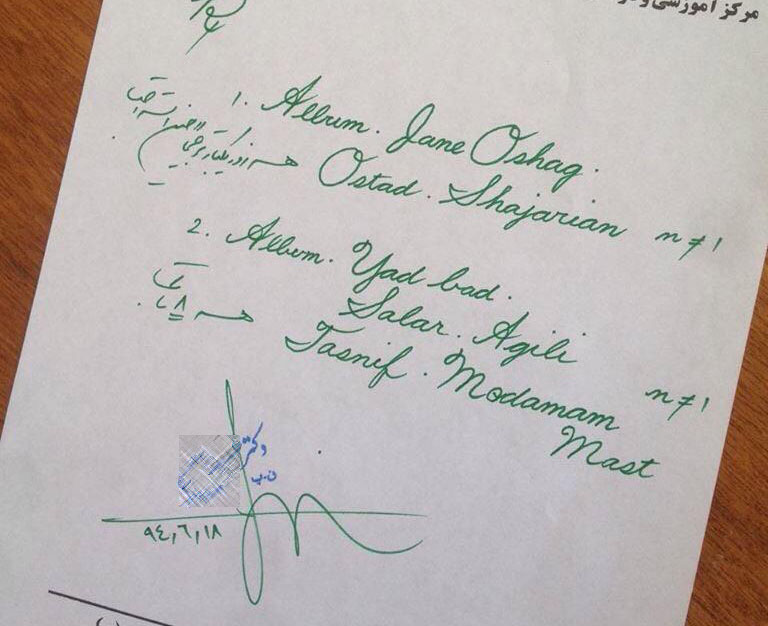 مرکز آموزشی و
1. Album. Jane Oshag.
Ostad. Shajarian n≠1
2. Album. Yad bad.
Salar. Agili
هر ۸
Tasnif. Modamam n≠1
Mast
دکتر
۹۴,۶,۱۸